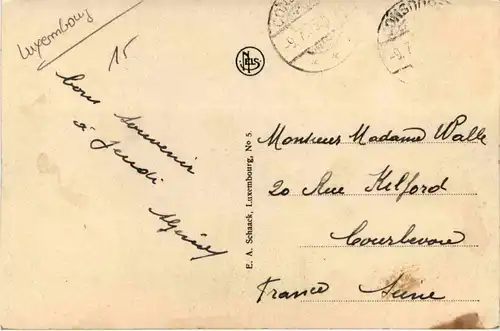 Luxembourg
15
bons souvenir
à Jeudi
NELS
E. A. Schaack, Luxembourg, No 5.
Monsieur Madame Walle
20 Rue Kilford
Courbevoie
France Seine